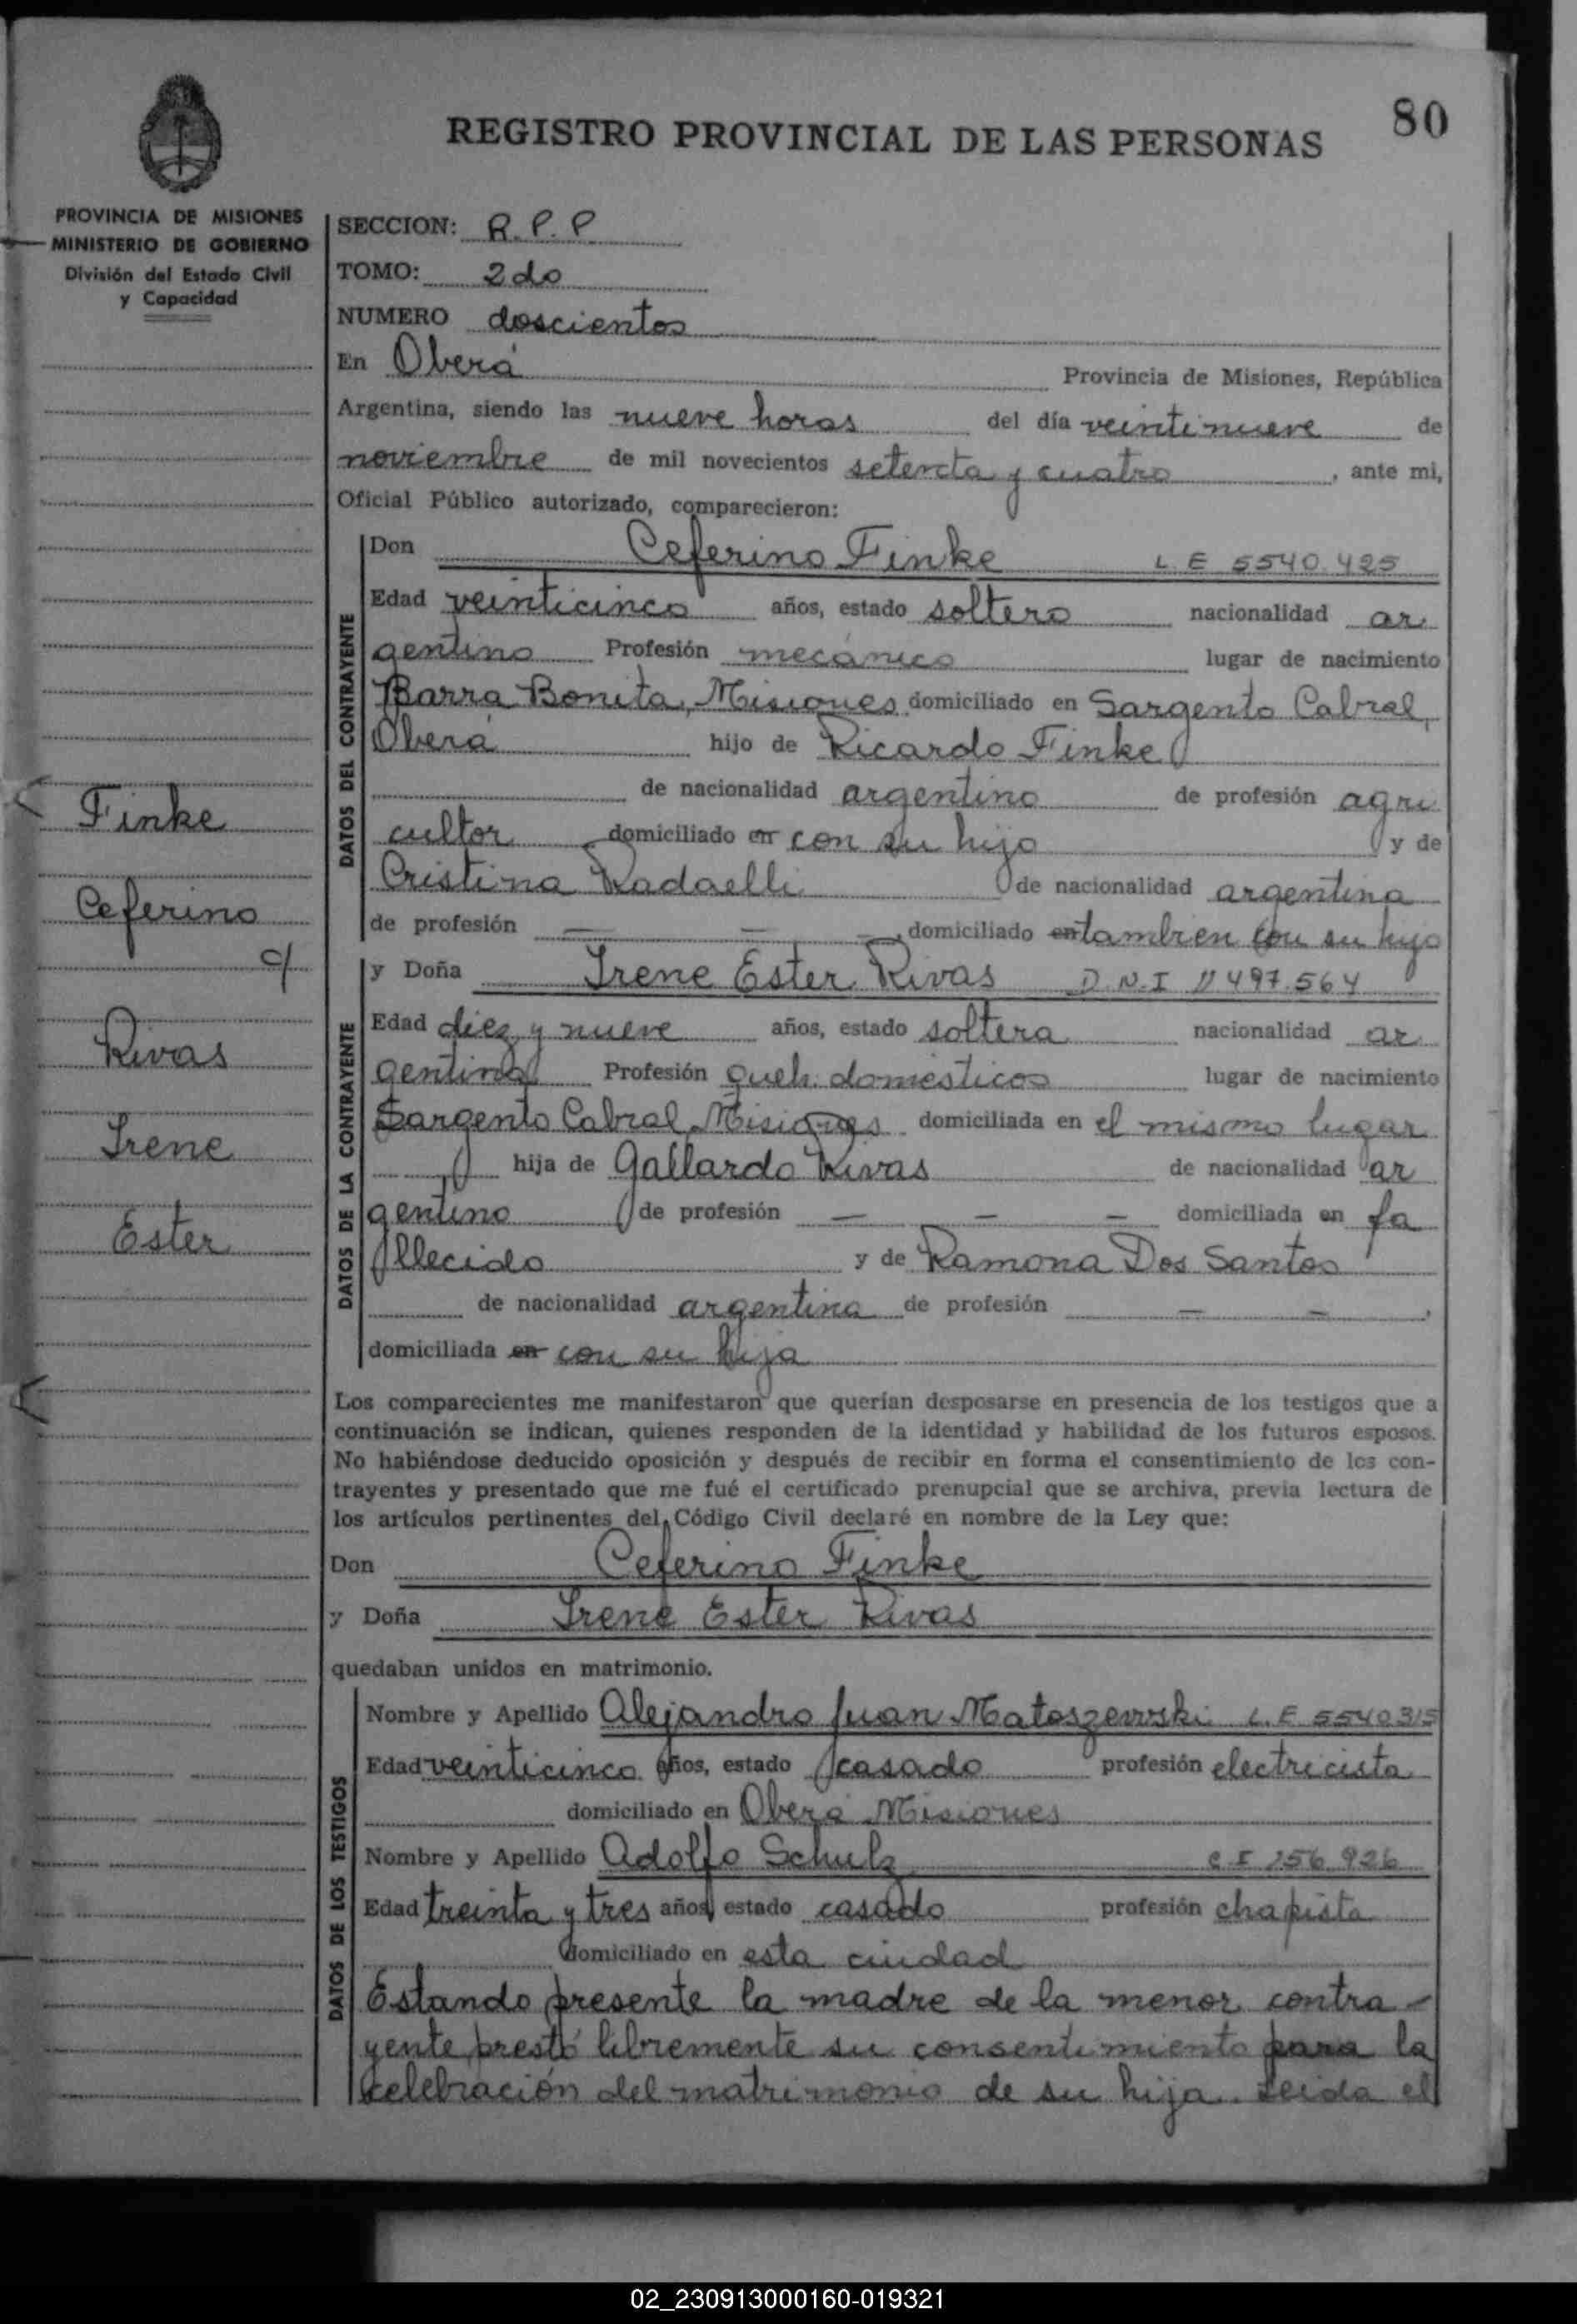 80
REGISTRO PROVINCIAL DE LAS PERSONAS
PROVINCIA DE MISIONES
MINISTERIO DE GOBIERNO
División del Estado Civil
y Capacidad
SECCION: R.P.P
TOMO: 2do
NUMERO doscientos
En Oberá Provincia de Misiones, República
Argentina, siendo las nueve horas del día veintinueve de
noviembre de mil novecientos setenta y cuatro, ante mi,
Oficial Público autorizado, comparecieron:
DATOS DEL CONTRAYENTE
Don Ceferino Finke L.E 5540.425
Edad veinticinco años, estado soltero nacionalidad ar
gentino Profesión mecánico lugar de nacimiento
Barra Bonita, Misiones domiciliado en Sargento Cabral,
Oberá hijo de Ricardo Finke
de nacionalidad argentino de profesión agri
cultor domiciliado en con su hijo y de
Cristina Radaelli de nacionalidad argentina
de profesión — — —, domiciliado en tambien con su hijo
Finke
Ceferino
c/
Rivas
Irene
Ester
DATOS DE LA CONTRAYENTE
y Doña Irene Ester Rivas D.N.I 11497.564
Edad diez y nueve años, estado soltera nacionalidad ar
gentina Profesión queh. domésticos lugar de nacimiento
Sargento Cabral, Misiones domiciliada en el mismo lugar
hija de Gallardo Rivas de nacionalidad ar
gentino de profesión — — — domiciliada en fa
llecido y de Ramona Dos Santos
de nacionalidad argentina de profesión — — ,
domiciliada en con su hija
Los comparecientes me manifestaron que querían desposarse en presencia de los testigos que a
continuación se indican, quienes responden de la identidad y habilidad de los futuros esposos.
No habiéndose deducido oposición y después de recibir en forma el consentimiento de los con-
trayentes y presentado que me fué el certificado prenupcial que se archiva, previa lectura de
los artículos pertinentes del Código Civil declaré en nombre de la Ley que:
Don Ceferino Finke
y Doña Irene Ester Rivas
quedaban unidos en matrimonio.
DATOS DE LOS TESTIGOS
Nombre y Apellido Alejandro Juan Mataszewski L.E 5540315
Edad veinticinco años, estado casado profesión electricista
domiciliado en Oberá Misiones
Nombre y Apellido Adolfo Schulz C.I 156.926
Edad treinta y tres años, estado casado profesión chapista
domiciliado en esta ciudad
Estando presente la madre de la menor contra-
yente, prestó libremente su consentimiento para la
celebración del matrimonio de su hija. Leida el
02_230913000160-019321